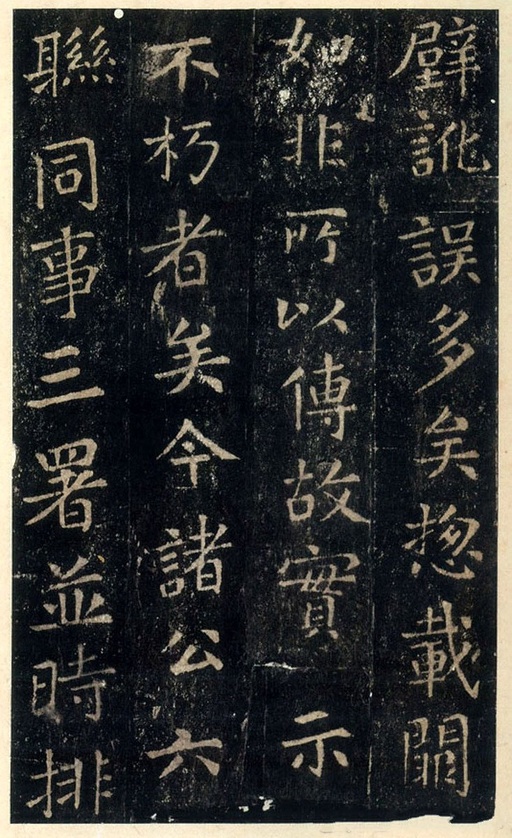 壁訛誤多矣惣載闕
如非所以傳故實示
不朽者矣今諸公六
聯同事三署並時排